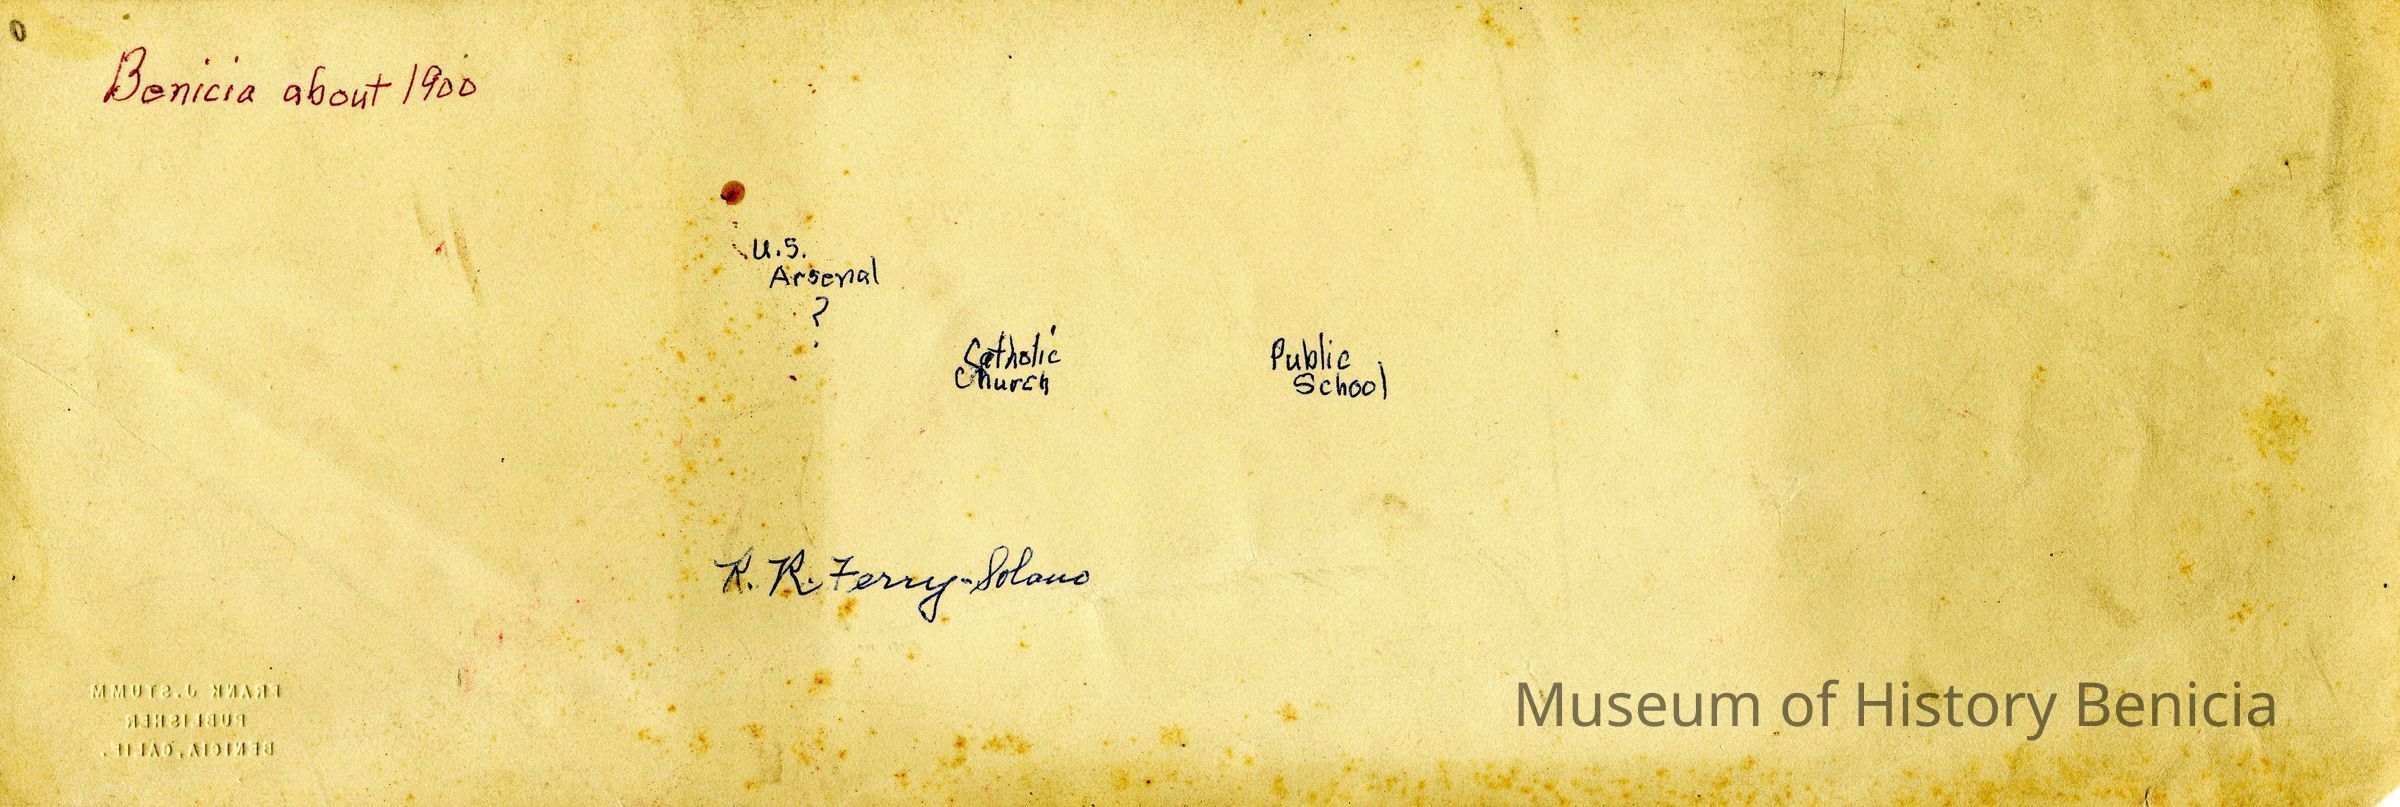 Benicia about 1900
U.S.
Arsenal
?
Catholic
Church
Public
School
R. R. Ferry-Solano
FRANK J. STUMM
PUBLISHER
BENICIA, CALIF.
Museum of History Benicia